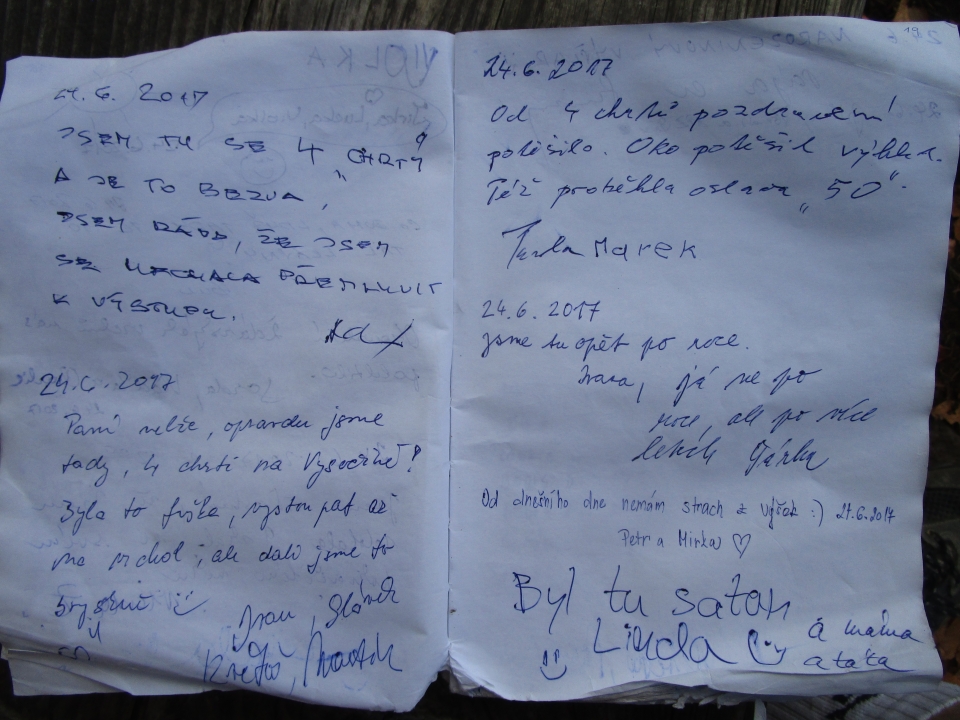 24.6. 2017
JSEM TU SE 4 CHRTY
A JE TO BEZVA,
JSEM RÁDA, ŽE JSEM
SE NECHALA PŘEMLUVIT
K VÝSTUPU.
24.6.2017
Paní nelže, opravdu jsme
tady, 4 chrti na Vysočině!
Byla to fuška, vystoupat až
na vrchol, ale dali jsme to
24.6. 2017
Od 4 chrtů pozdravení
potěšilo. Oko potěšil výhled.
Též proběhla oslava „50“.
Marek
24.6.2017
jsme tu opět po roce.
já ne po
roce, ale po více
letech Járka
Od dnešního dne nemám strach z výšek :) 27.6.2017
Petr a Mirka ♡
Byl tu satan
Linda
a máma
a táta
VIOLKA